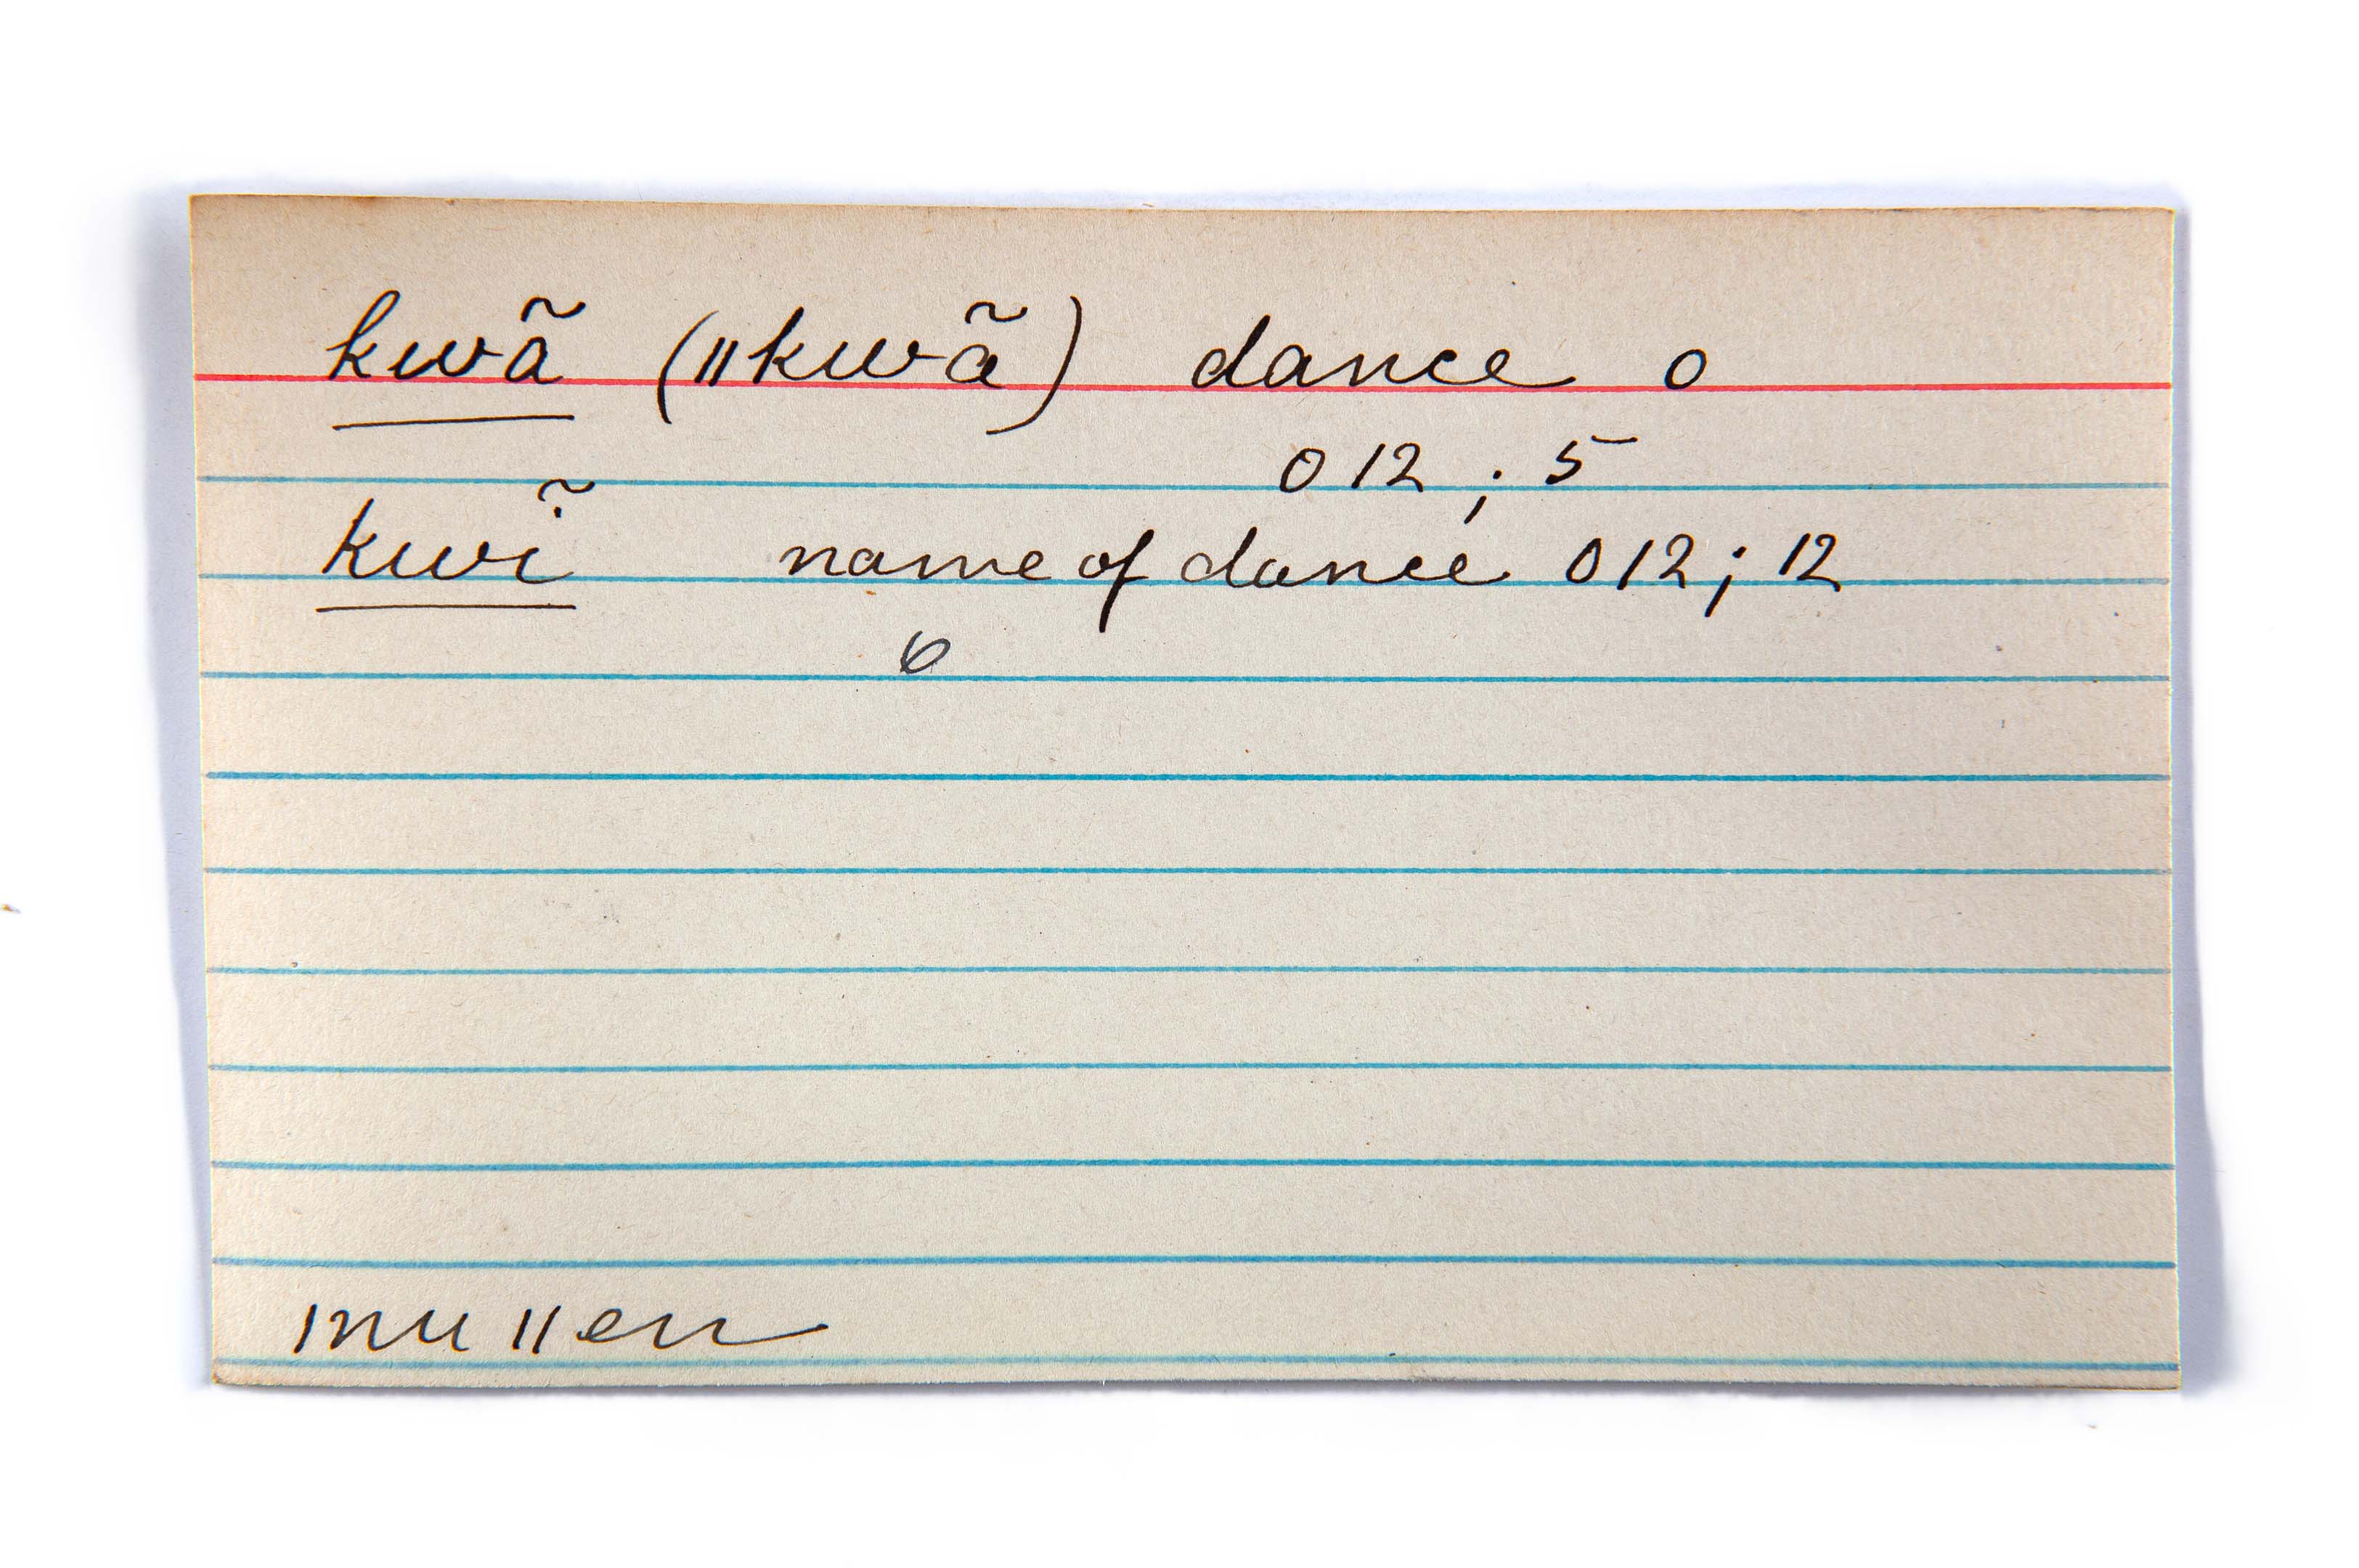 kwã (ǁkwã) dance o
012 ; 5
kwĩ name of dance 012 ; 12
o
ǀnuǁen